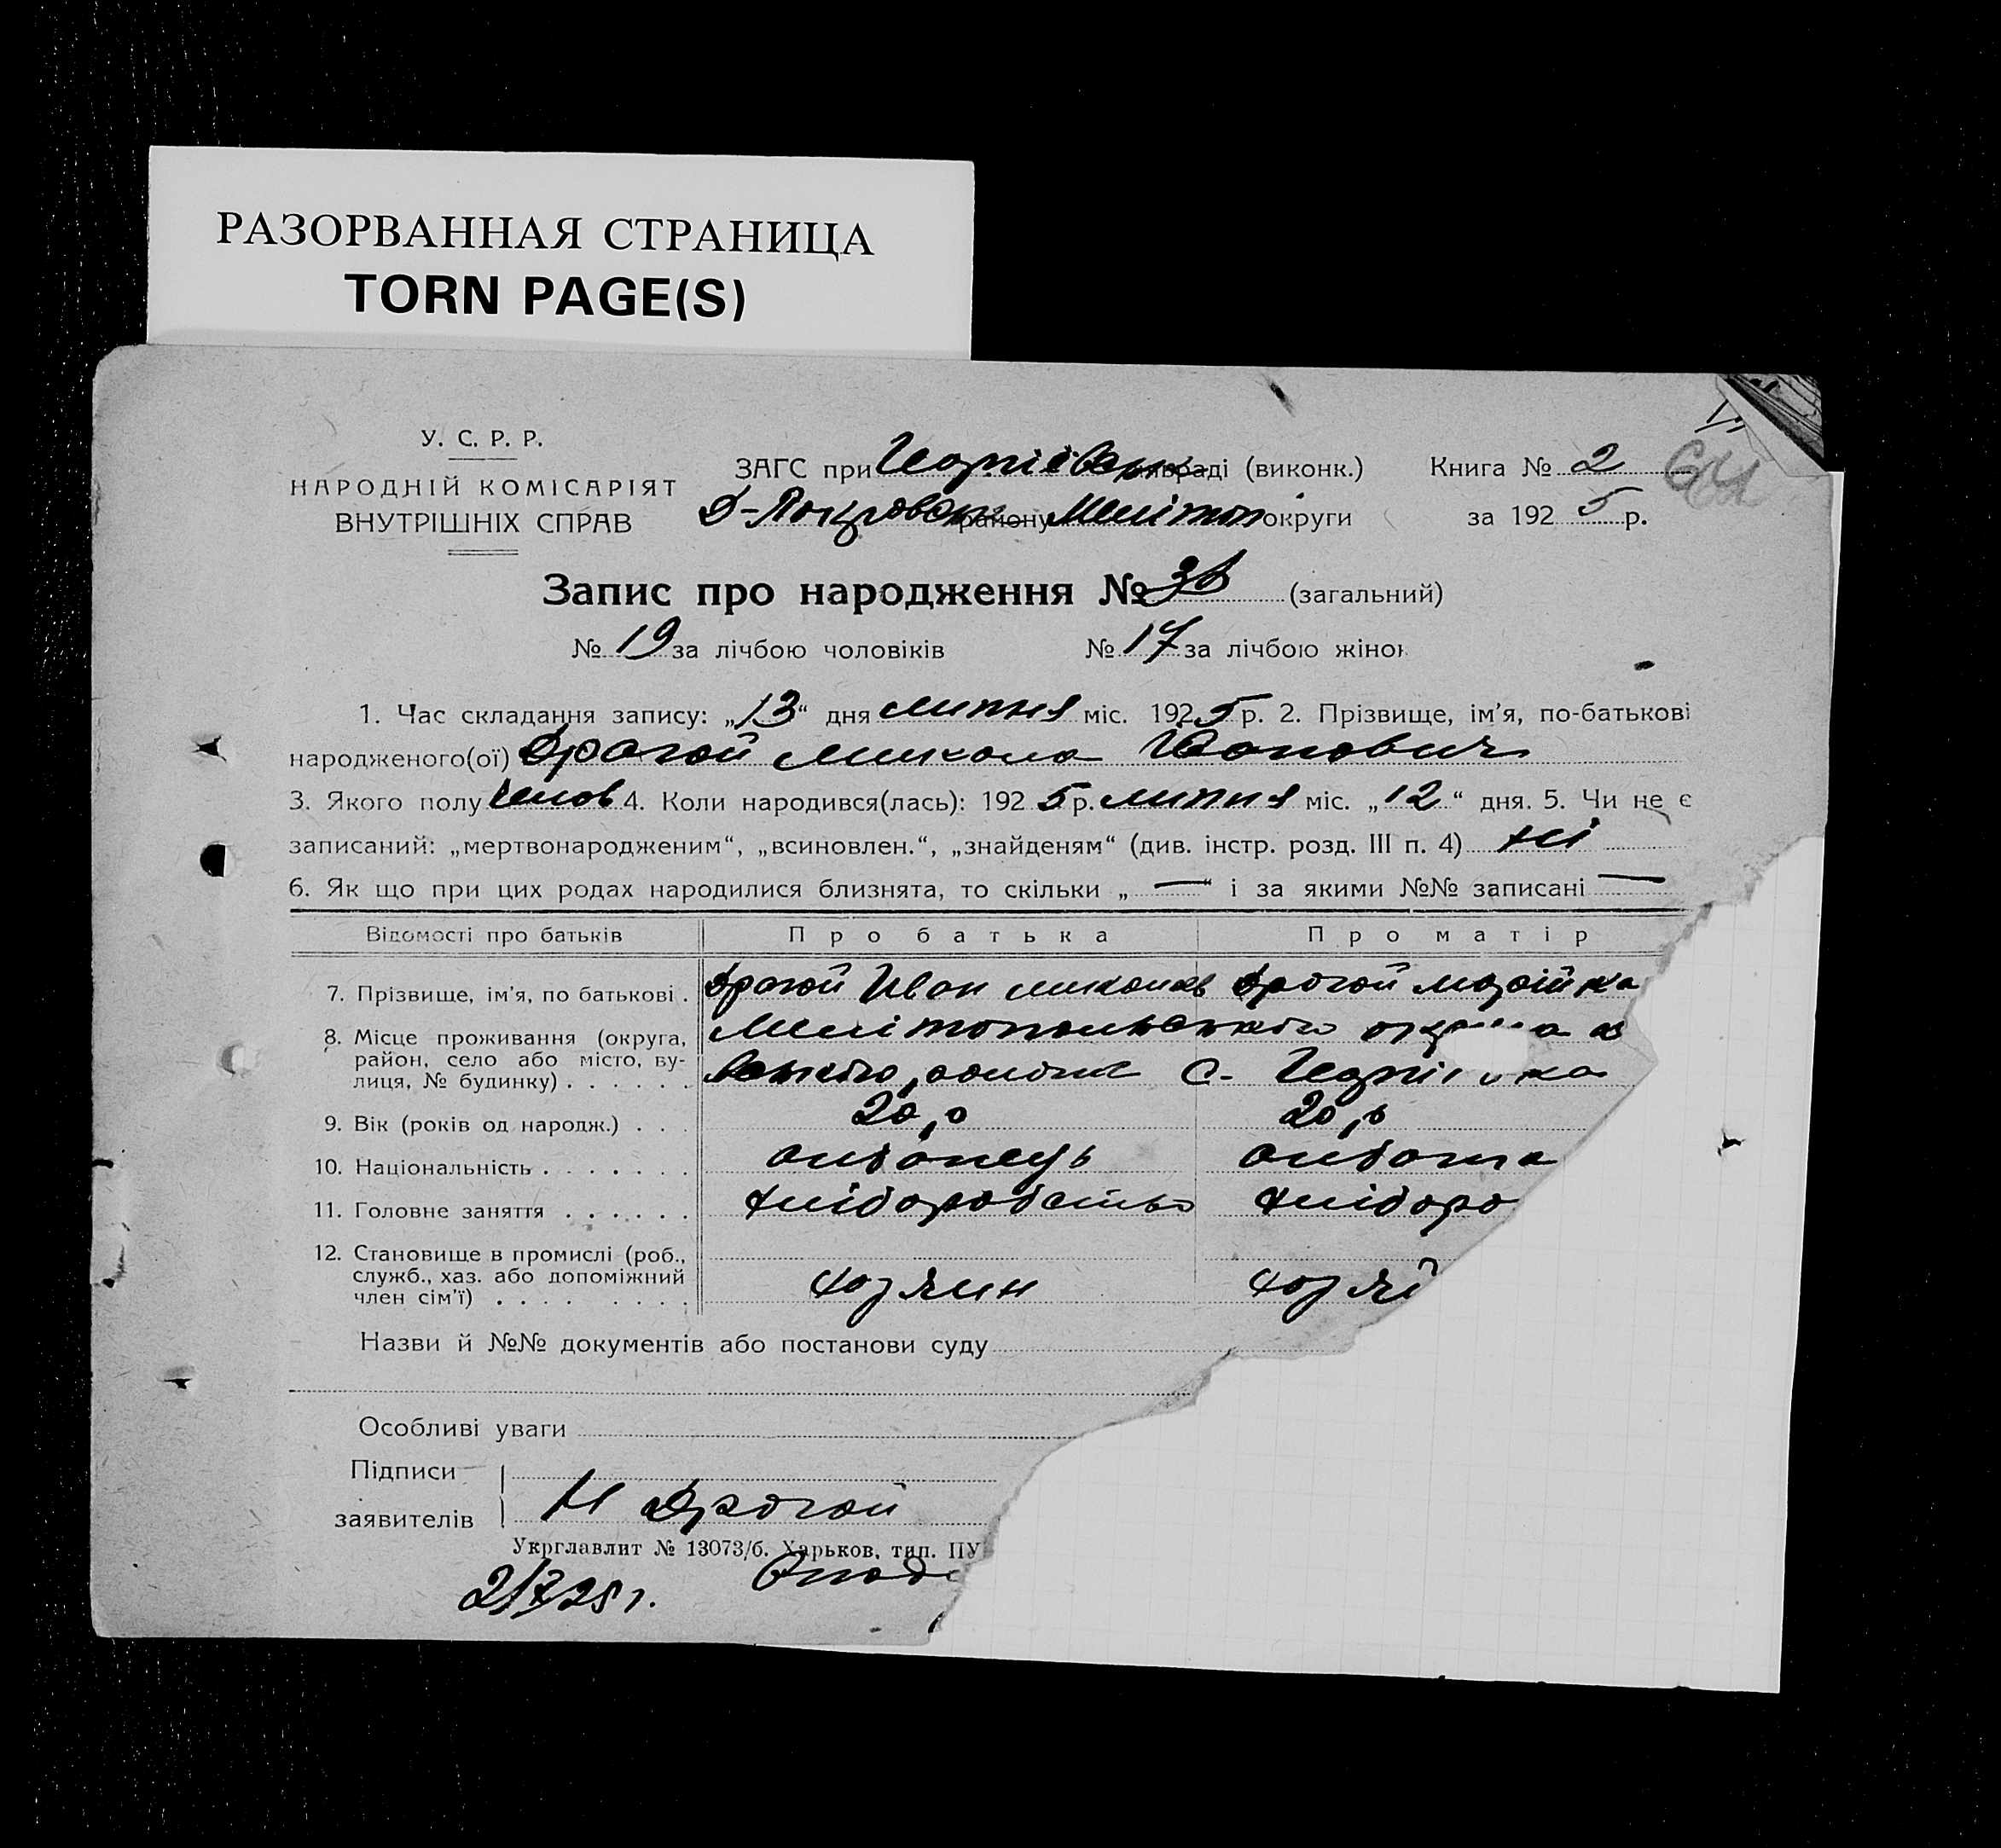 РАЗОРВАННАЯ СТРАНИЦА
TORN PAGE(S)
У. С. Р. Р.
НАРОДНІЙ КОМІСАРІЯТ
ВНУТРІШНІХ СПРАВ
ЗАГС при раді (виконк.) Книга № 2
району Мелітоп округи за 1925 р.
64
Запис про народження № 36 (загальний)
№ 19 за лічбою чоловіків № 17 за лічбою жінок
1. Час складання запису: „13“ дня липня міс. 1925 р. 2. Прізвище, ім'я, по-батькові
народженого(ої) Драгой Микола Іванович
3. Якого полу 4. Коли народився(лась): 1925 р. липня міс. „12“ дня. 5. Чи не є
записаний: „мертвонародженим“, „всиновлен.“, „знайденям“ (див. інстр. розд. III п. 4) ні
6. Як що при цих родах народилися близнята, то скільки „—“ і за якими №№ записані —
Відомості про батьків Про батька Про матір
7. Прізвище, ім'я, по батькові . Драгой Иван Драгой
8. Місце проживання (округа, Мелітопольського
район, село або місто, ву-
лиця, № будинку) . . . . . . району с.
9. Вік (років од народж.) . . . 20 20
10. Національність . . . . . . . албанець албанка
11. Головне заняття . . . . . . хліборобство хліборо
12. Становище в промислі (роб.,
служб., хаз. або допоміжний
член сім'ї) . . . . . . . . хозяин хозяй
Назви й №№ документів або постанови суду
Особливі уваги
Підписи
заявителів Драгой
Укрглавлит № 13073/б. Харьков, тип. ПУ